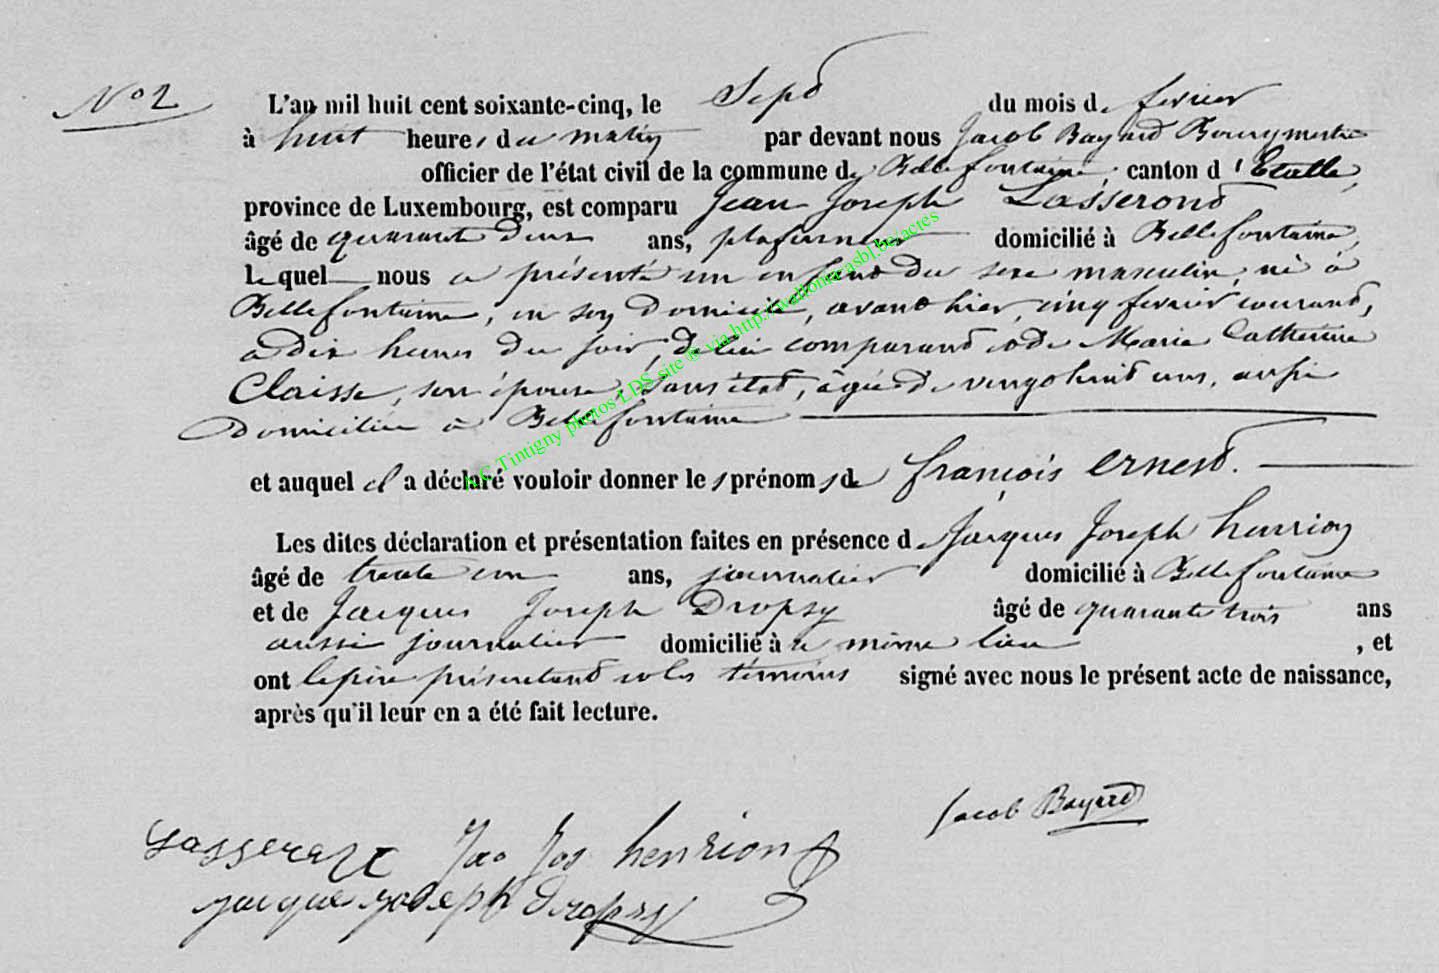 N° 2
L'an mil huit cent soixante-cinq, le Sept du mois de fevrier
à huit heures du matin par devant nous Jacob Bayard Bourgmestre
officier de l'état civil de la commune de Bellefontaine, canton d'Etalle,
province de Luxembourg, est comparu Jean Joseph Lasseront
âgé de quarante deux ans, plafonneur domicilié à Bellefontaine,
lequel nous a présenté un enfant du sexe masculin, né à
Bellefontaine, en son domicile, avant hier, cinq fevrier courant,
a dix heures du soir, de lui comparant et de Marie Catherine
Claisse, son épouse, sans état, âgée de vingt huit ans, aussi
domiciliée à Bellefontaine
et auquel il a déclaré vouloir donner les prénoms de françois ernest.
Les dites déclaration et présentation faites en présence de Jacques Joseph henrion
âgé de trente un ans, journalier domicilié à Bellefontaine
et de Jacques Joseph Dropsy âgé de quarante trois ans
aussi journalier domicilié à ce même lieu , et
ont le père présentant et les témoins signé avec nous le présent acte de naissance,
après qu'il leur en a été fait lecture.
Jacob Bayard
Jac Jos henrion
jacque joseph dropsy
A.C. Tintigny photos LDS site ® via http://walloniecasbl.be/actes